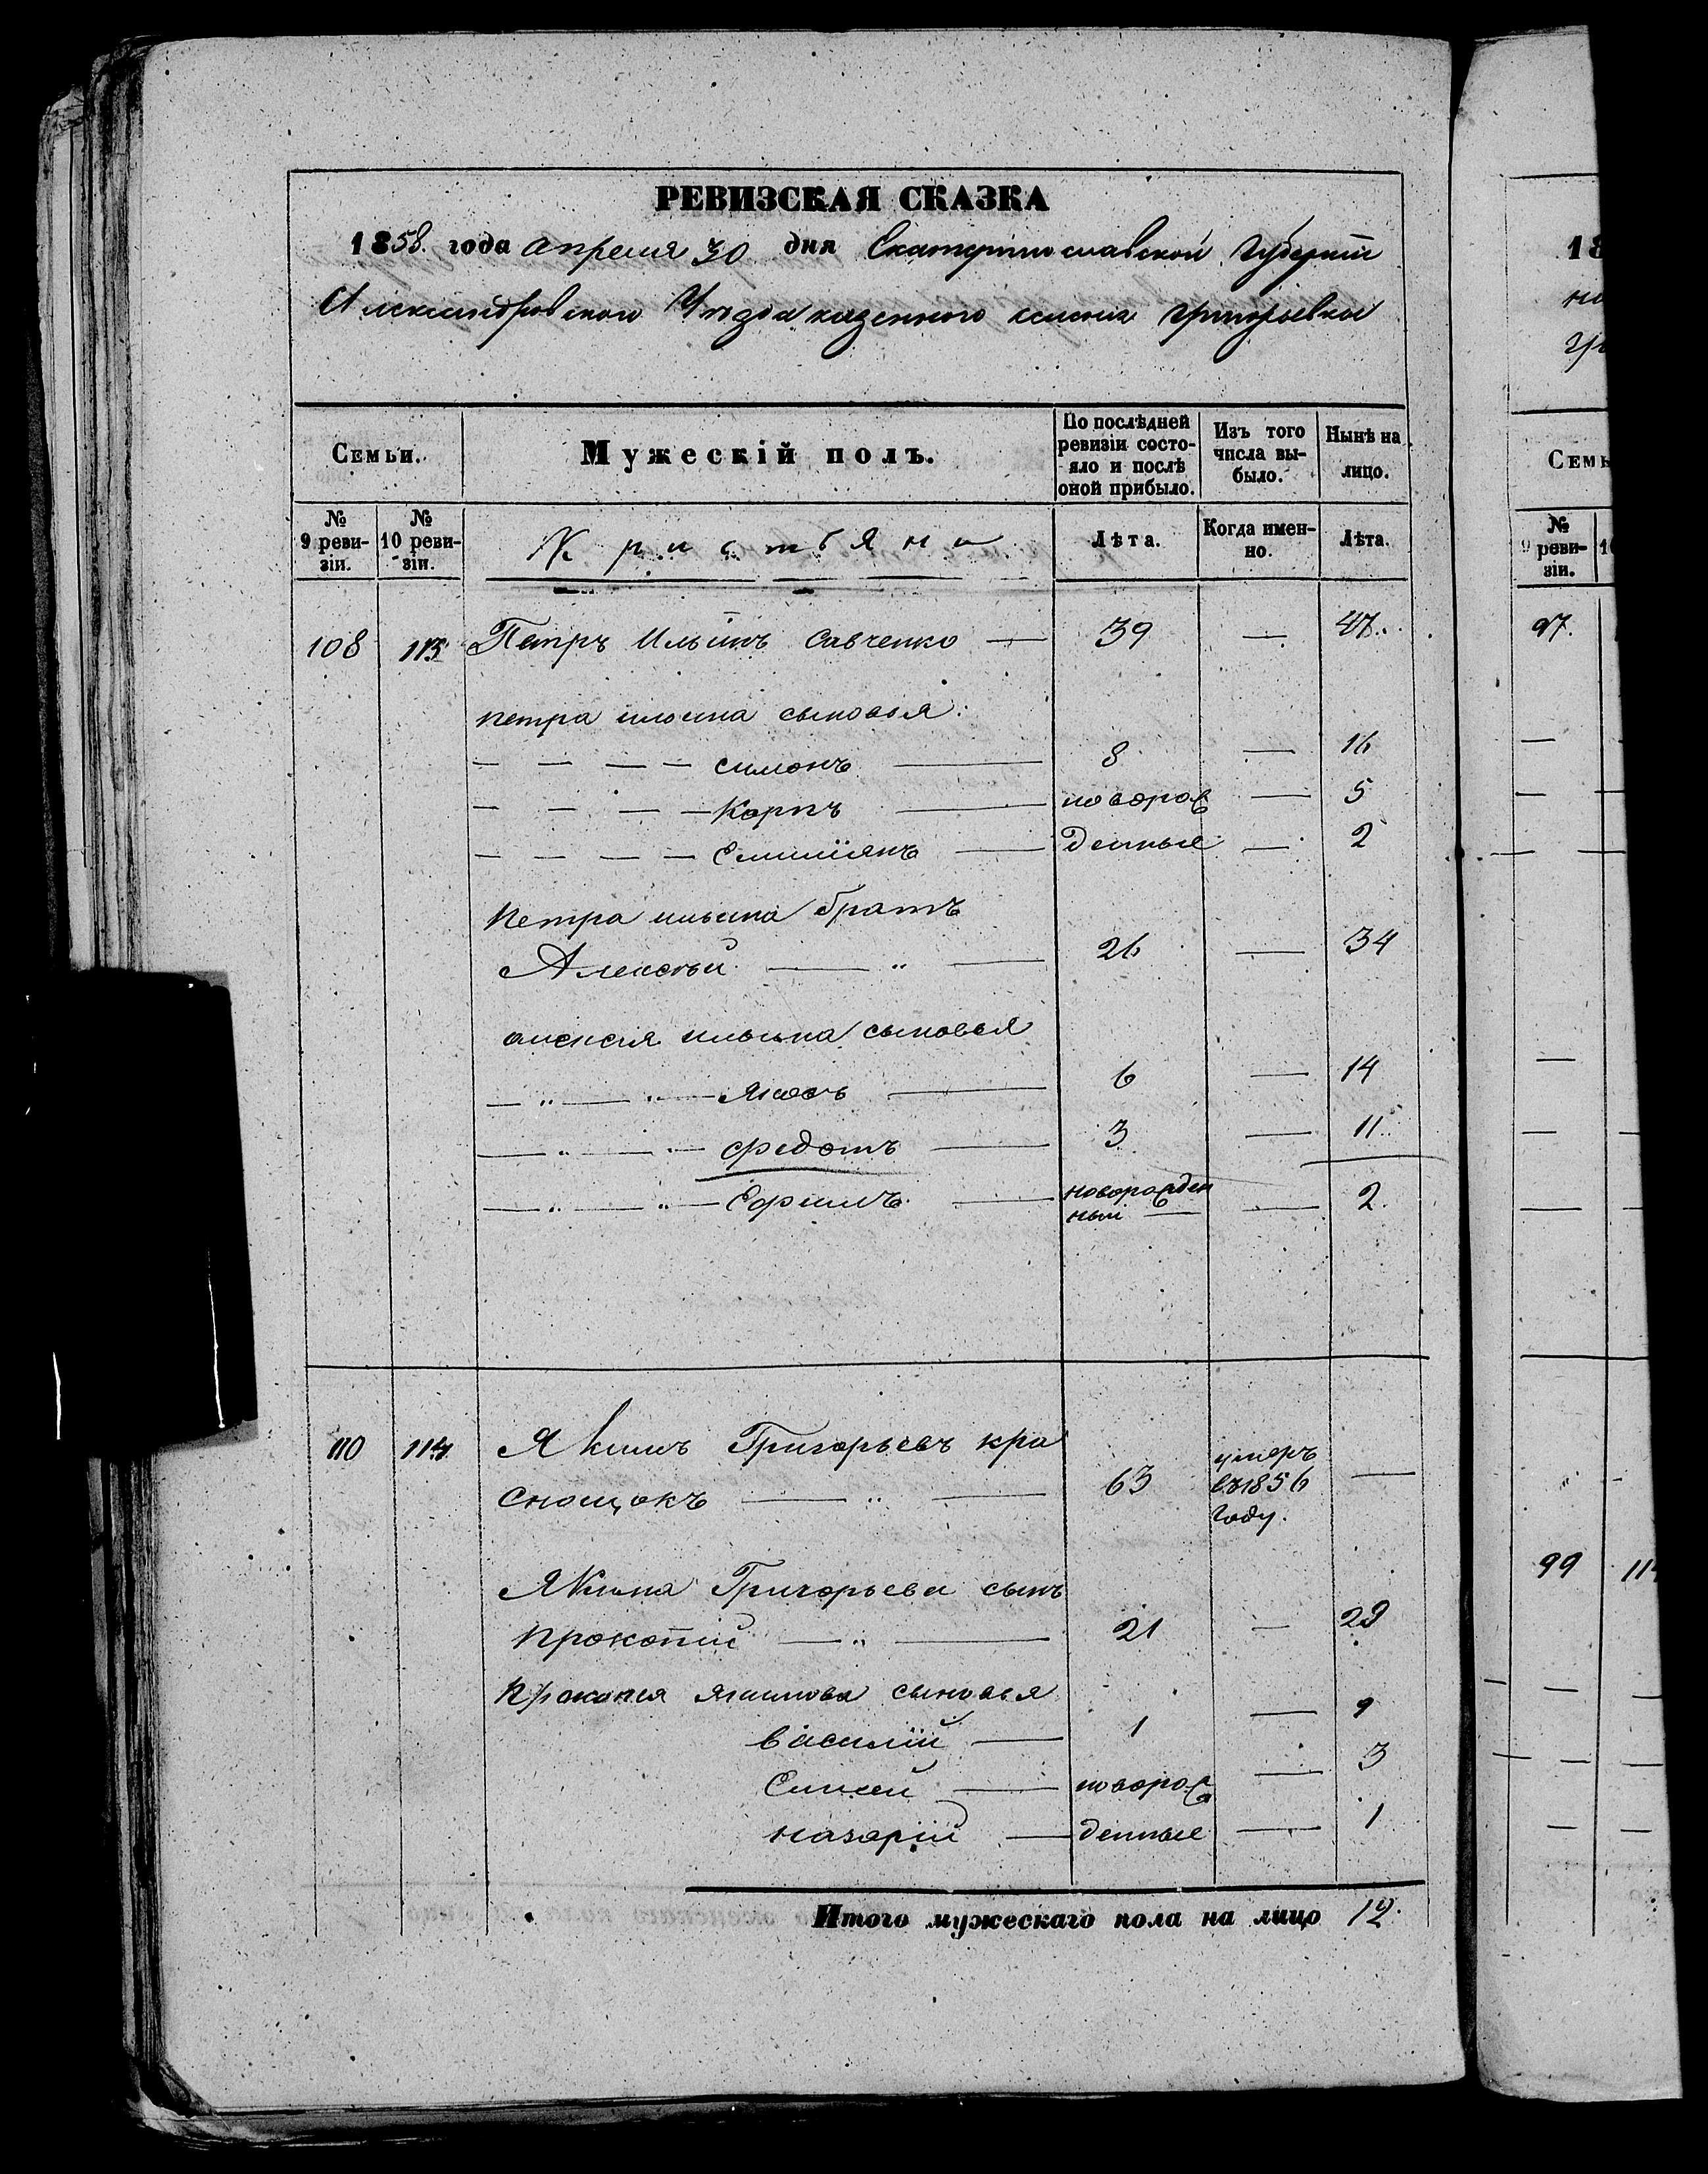 РЕВИЗСКАЯ СКАЗКА
1858. года апреля 30 дня Екатеринославской Губернии
Александровского Уезда казенного селения Григорьевки
Семьи. Мужескій полъ. По послѣдней ревизіи состояло и послѣ оной прибыло. Изъ того числа выбыло. Нынѣ на лицо.
№ 9 ревизіи. № 10 ревизіи. Кристьяни Лѣта. Когда именно. Лѣта.
108 113 Петръ Ильинъ Савченко — 39 — 47.
петра ильина сыновья:
— — — — симонъ — 8 — 16
— — — — Карпъ — новорож — 5
— — — — Емилiянъ — денные — 2
Петра ильина братъ
Алексѣй — „ — 26 — 34
алексея ильина сыновья
— „ — „ — яковъ — 6 — 14
— „ — „ — федотъ — 3 — 11
— „ — „ — Ефимъ — новорожден
ный — — 2.
110 114 Якимъ Григорьевъ кра
снощокъ — „ — 63 умеръ
въ 1856
году. —
Якима Григорьева сынъ
прокопiй — „ — 21 — 29
Прокопия якимова сыновья
василiй — 1 — 9
— новорож — 3
назарiй — денные — 1
Итого мужескаго пола на лицо 12.
18
Семь
№ 9 ревизіи. 10
97.
99 114